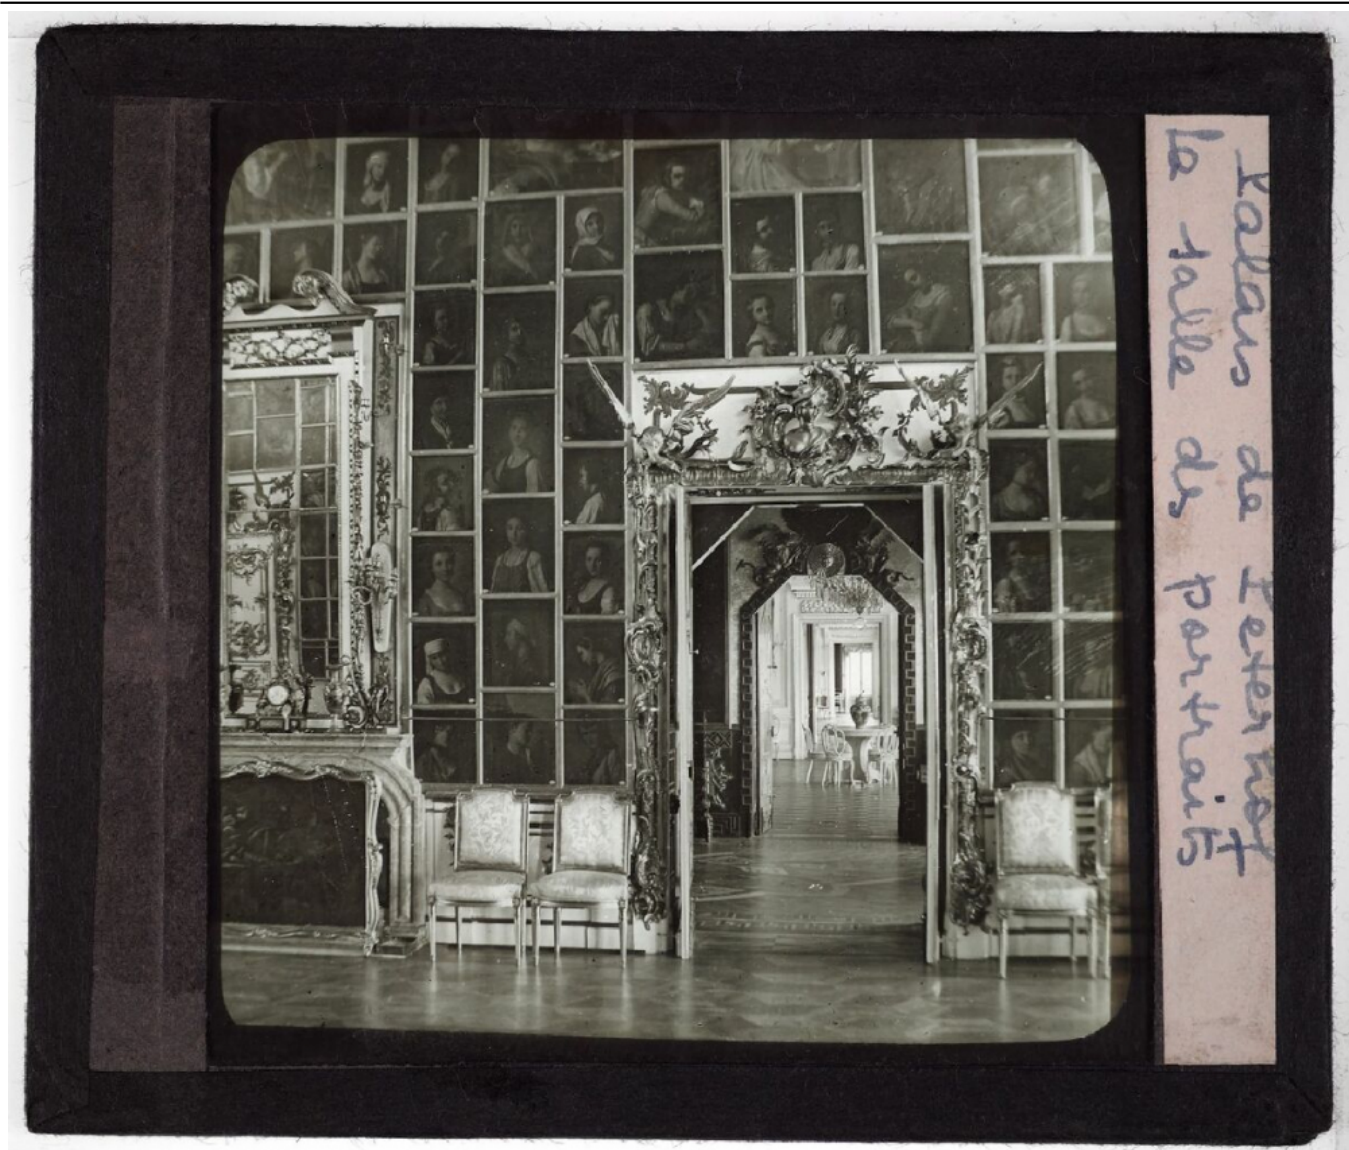 Palais de Peterhof
La salle des portraits